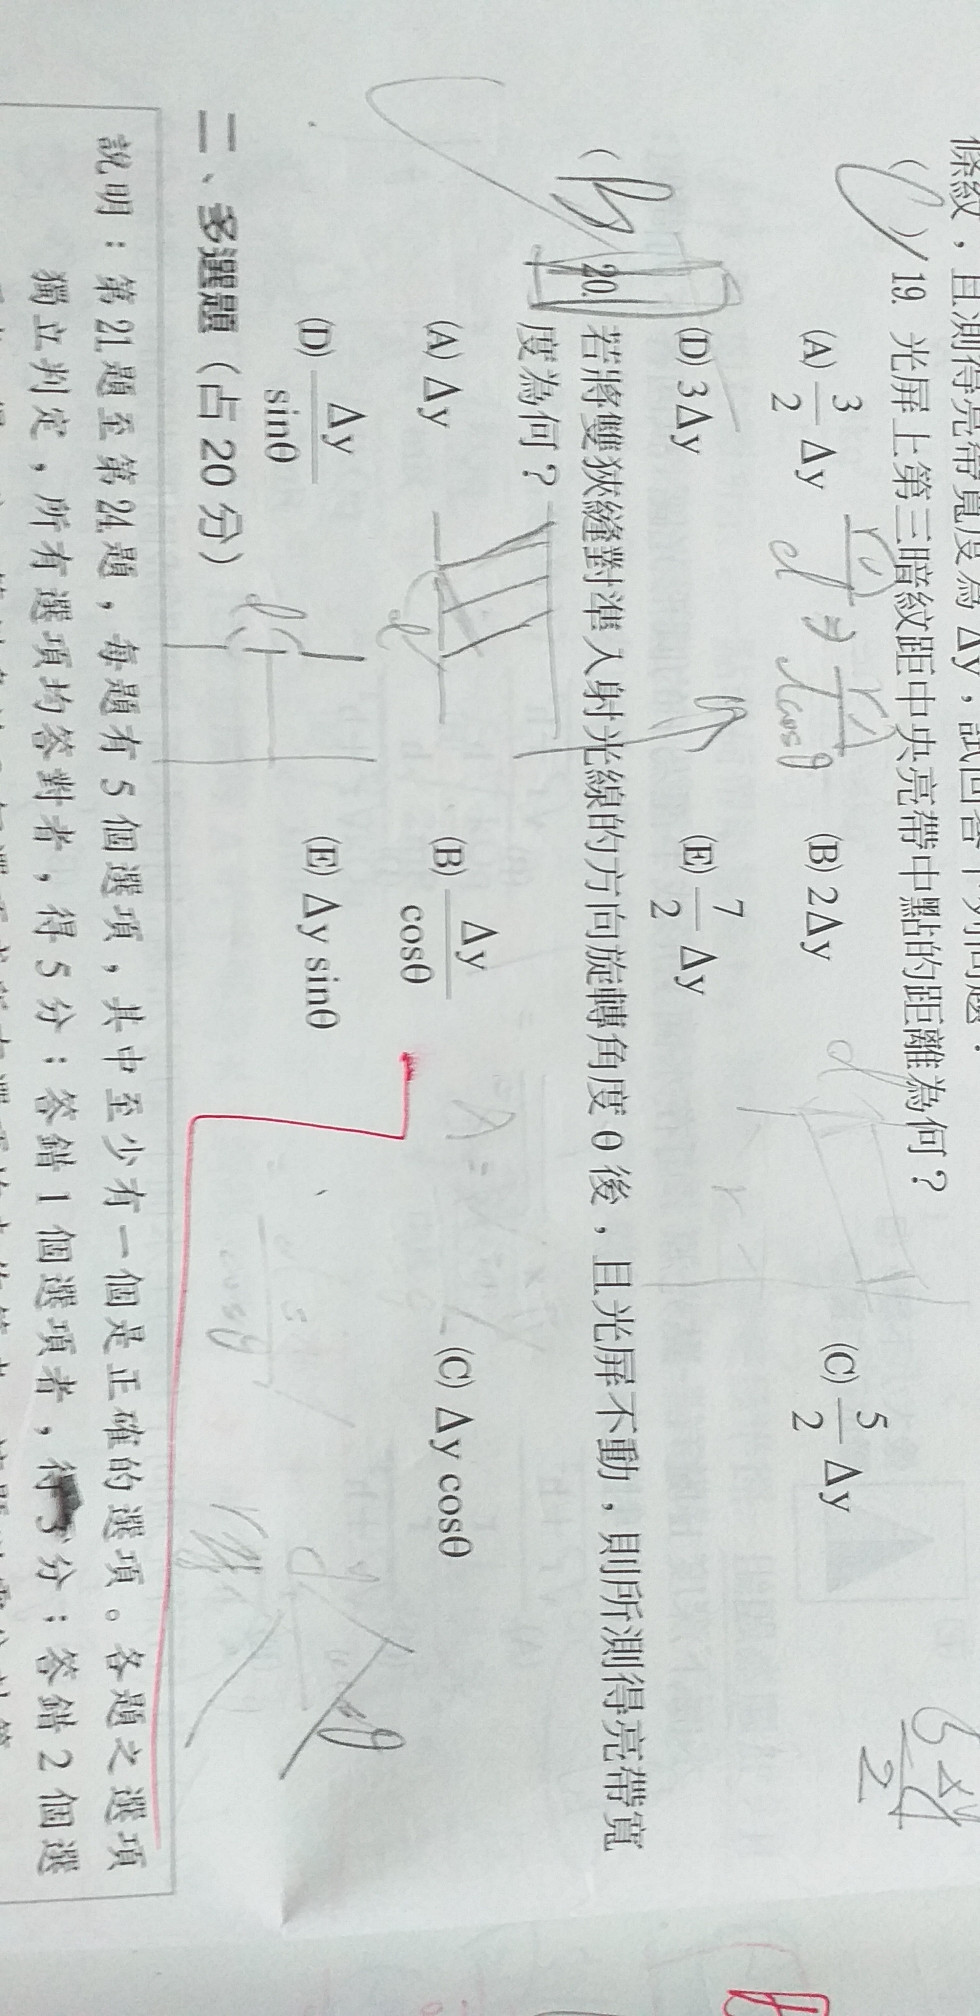 條紋，且測得亮帶寬度為 Δy，試回答下列問題：
( C ) 19. 光屏上第三暗紋距中央亮帶中點的距離為何？
(A) 3/2 Δy (B) 2Δy (C) 5/2 Δy
(D) 3Δy (E) 7/2 Δy
rλ/d ⇒ rλ/dcosθ
5Δy/2
( B ) 20. 若將雙狹縫對準入射光線的方向旋轉角度 θ 後，且光屏不動，則所測得亮帶寬
度為何？
(A) Δy (B) Δy/cosθ (C) Δy cosθ
(D) Δy/sinθ (E) Δy sinθ
二、多選題（占 20 分）
說明：第 21 題至第 24 題，每題有 5 個選項，其中至少有一個是正確的選項。各題之選項
獨立判定，所有選項均答對者，得 5 分；答錯 1 個選項者，得 3 分；答錯 2 個選